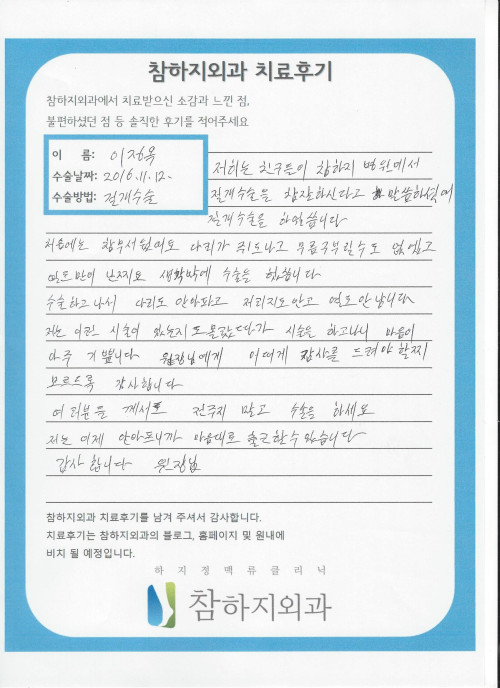 참하지외과 치료후기
참하지외과에서 치료받으신 소감과 느낀 점,
불편하셨던 점 등 솔직한 후기를 적어주세요
이 름: 이정옥
수술날짜: 2016.11.12.
수술방법: 절개수술
저희는 친구들이 참하지 병원에서
절개수술을 잘하신다고 말씀하셔서
절개수술을 하였습니다
처음에는 다리가 쥐나고 무릎 수도 없었고
수술을 했습니다
수술하고나서 다리도 안아파고 저리지도 안고 열도 안납니다
저는 이런 시술이 있는지도 몰랐다가 시술을 하고나니 마음이
아주 기쁩니다 원장님에게 어떻게 감사를 드려야 할찌
모르드록 감사합니다
여러분들 께서도 전주지 말고 수술을 하세요
저는 이제 안아프니까 마음대로 출근할수있습니다
감사합니다 원장님
참하지외과 치료후기를 남겨 주셔서 감사합니다.
치료후기는 참하지외과의 블로그, 홈페이지 및 원내에
비치 될 예정입니다.
하지정맥류클리닉
참하지외과